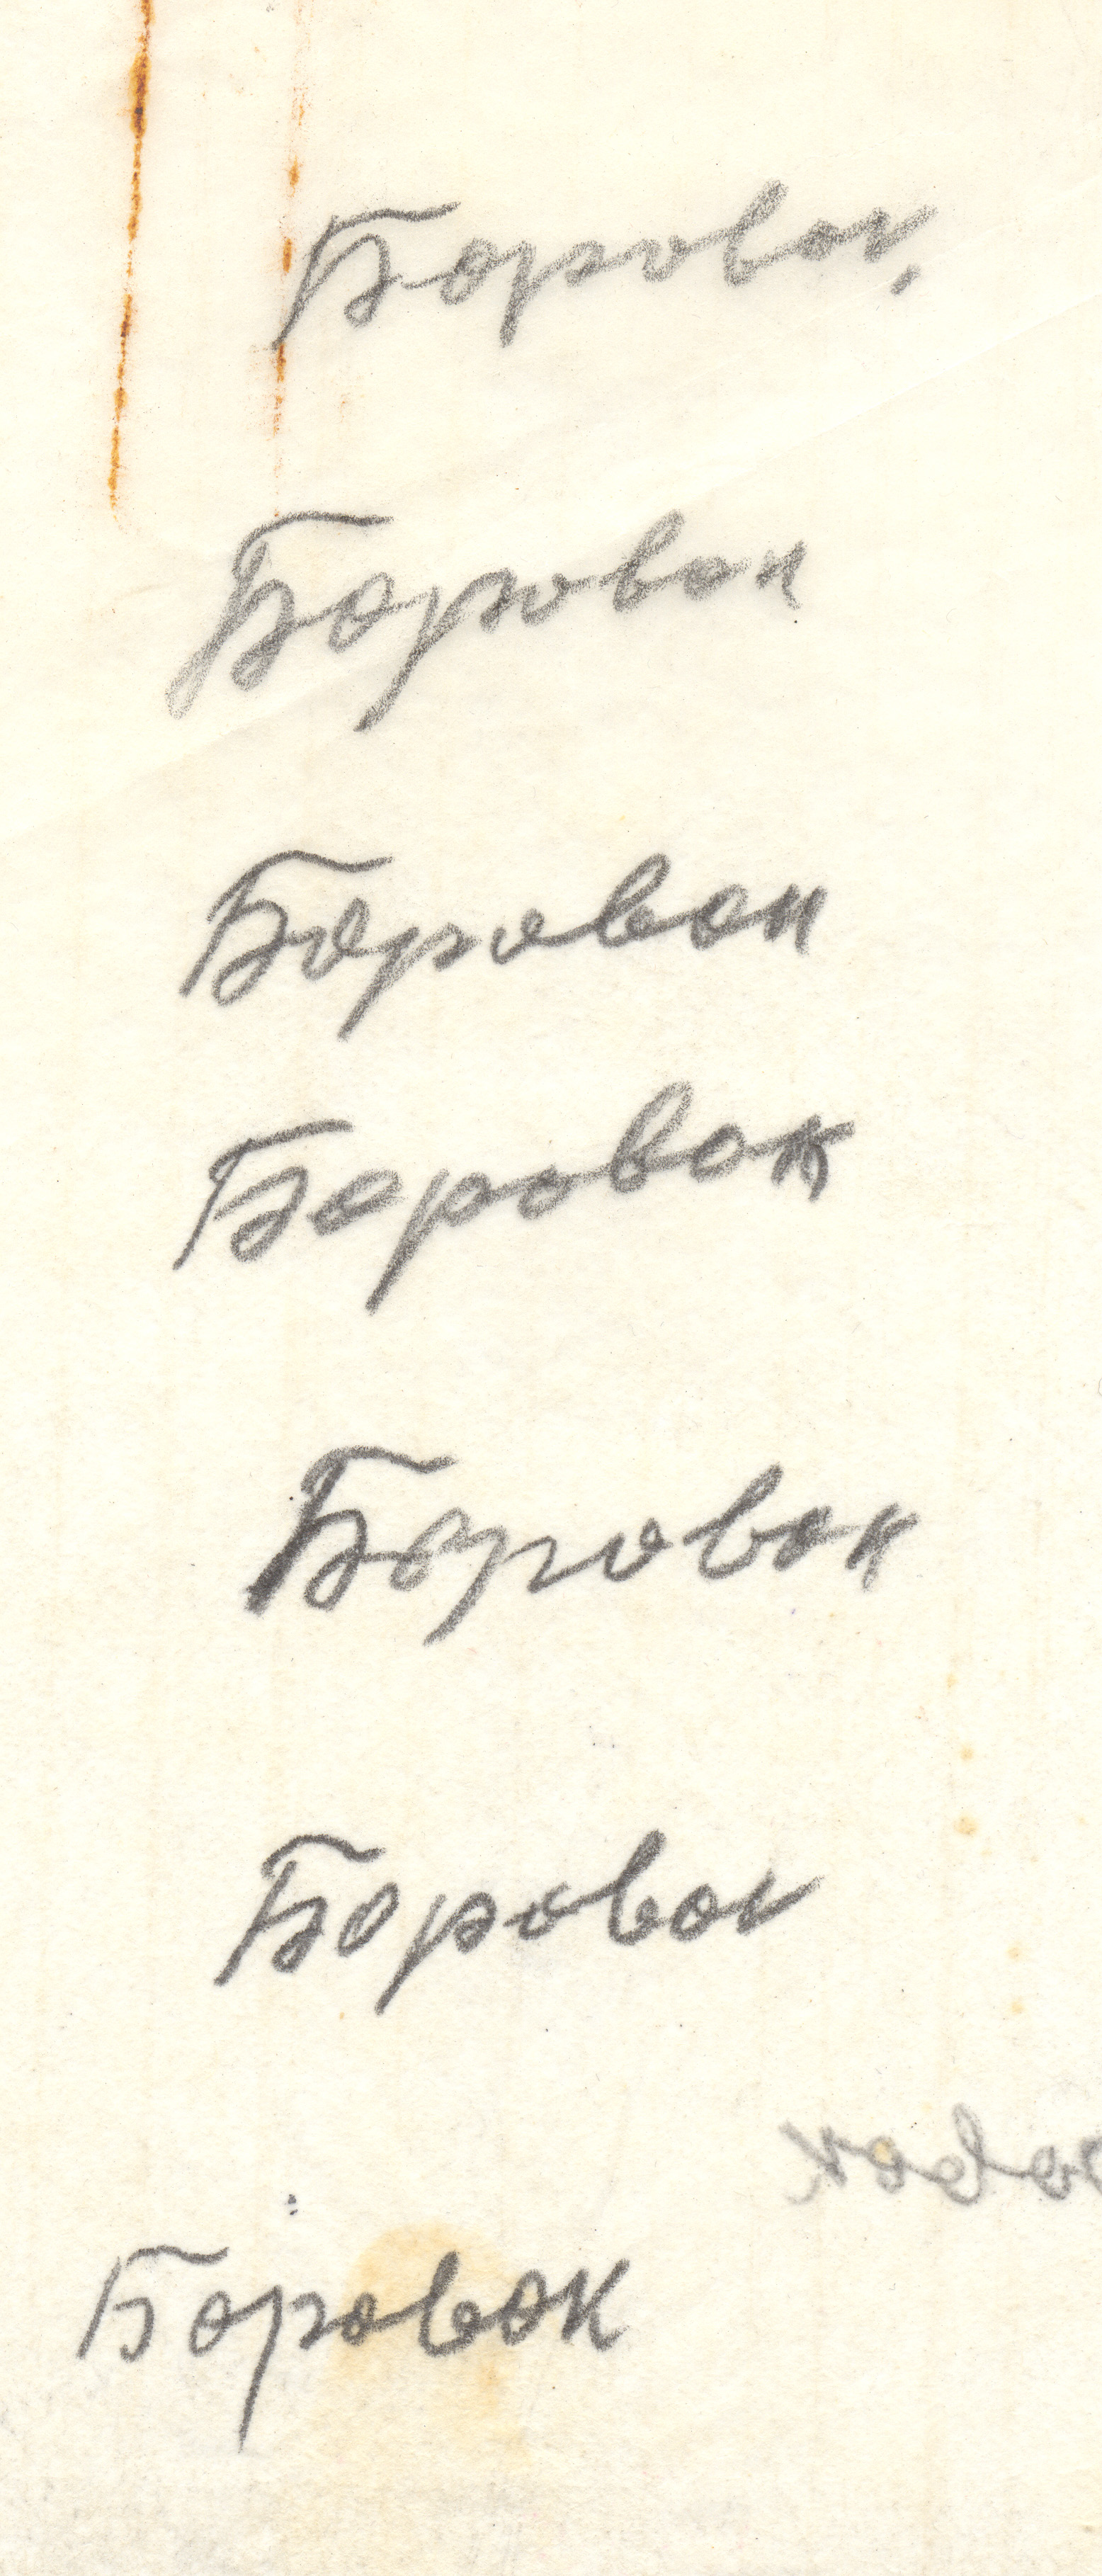 Боровок
Боровок
Боровок
Боровок
Боровок
Боровок
Боровок